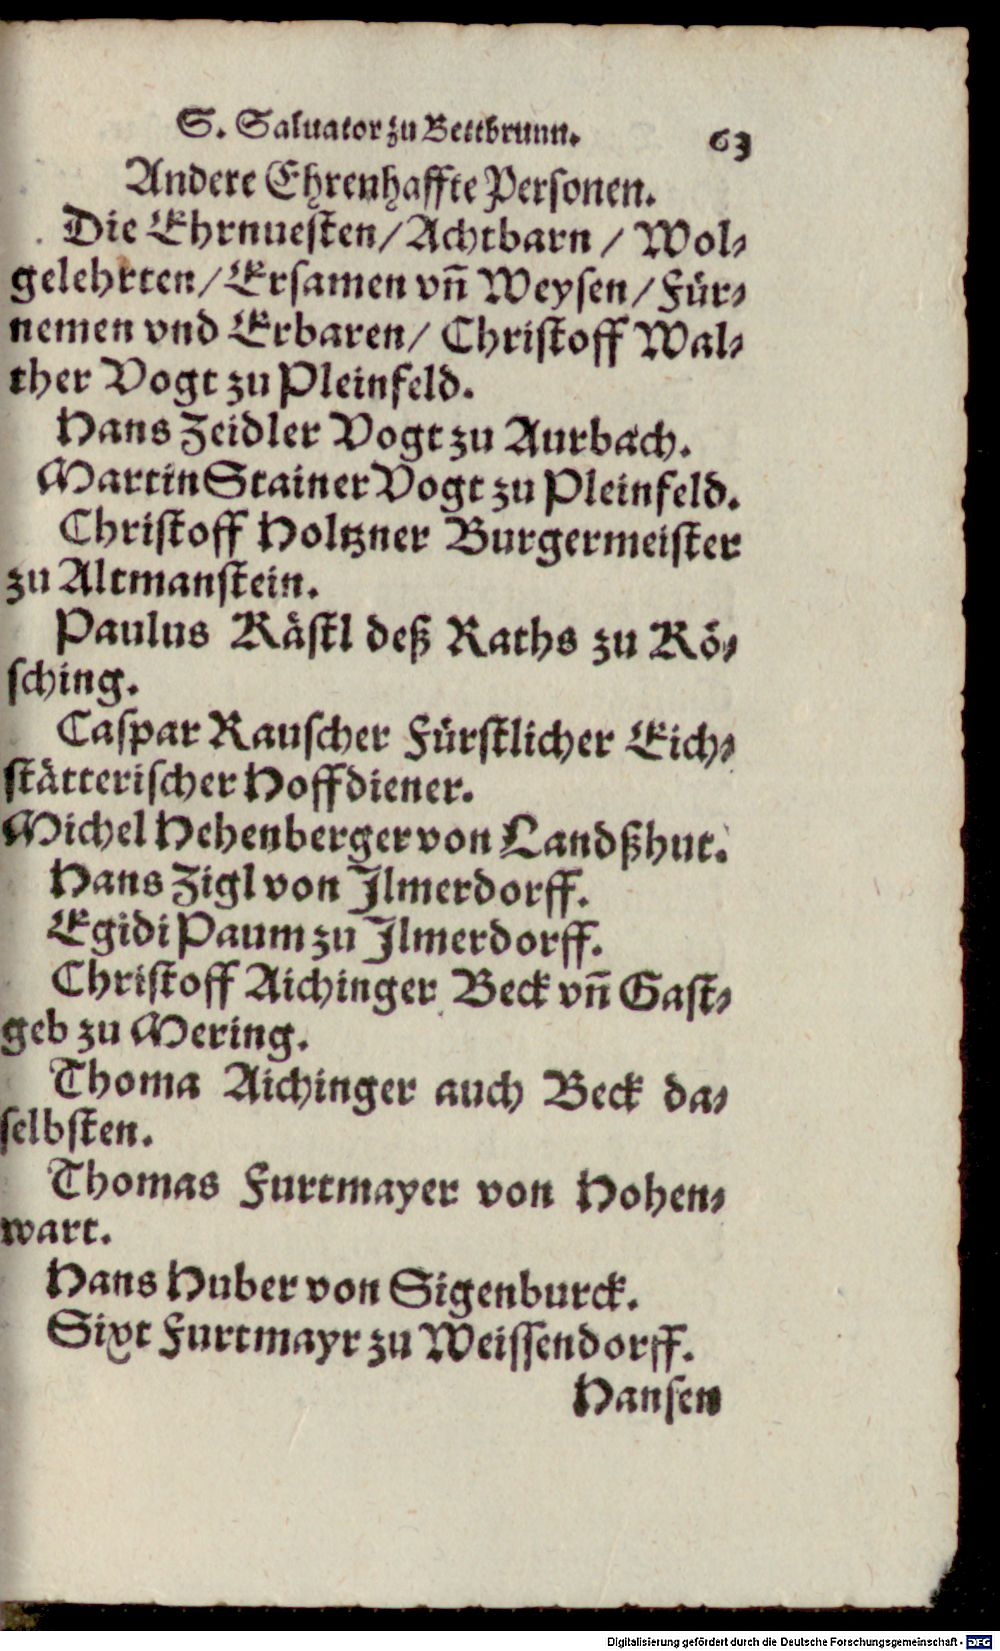 S. Saluator zu Bettbrunn. 63
Andere Ehrenhaffte Personen.
Die Ehrnuesten / Achtbarn / Wol-
gelehrten / Ersamen vñ Weysen / Für-
nemen vnd Erbaren / Christoff Wal-
ther Vogt zu Pleinfeld.
Hans Zeidler Vogt zu Aurbach.
Martin Stainer Vogt zu Pleinfeld.
Christoff Holtzner Burgermeister
zu Altmanstein.
Paulus Rästl deß Raths zu Rö-
sching.
Caspar Rauscher Fürstlicher Eich-
stätterischer Hoffdiener.
Michel Hehenberger von Landßhut.
Hans Zigl von Ilmerdorff.
Egidi Paum zu Ilmerdorff.
Christoff Aichinger Beck vñ Gast-
geb zu Mering.
Thoma Aichinger auch Beck da-
selbsten.
Thomas Furtmayer von Hohen-
wart.
Hans Huber von Sigenburck.
Sixt Furtmayr zu Weissendorff.
Hansen
Digitalisierung gefördert durch die Deutsche Forschungsgemeinschaft - DFG